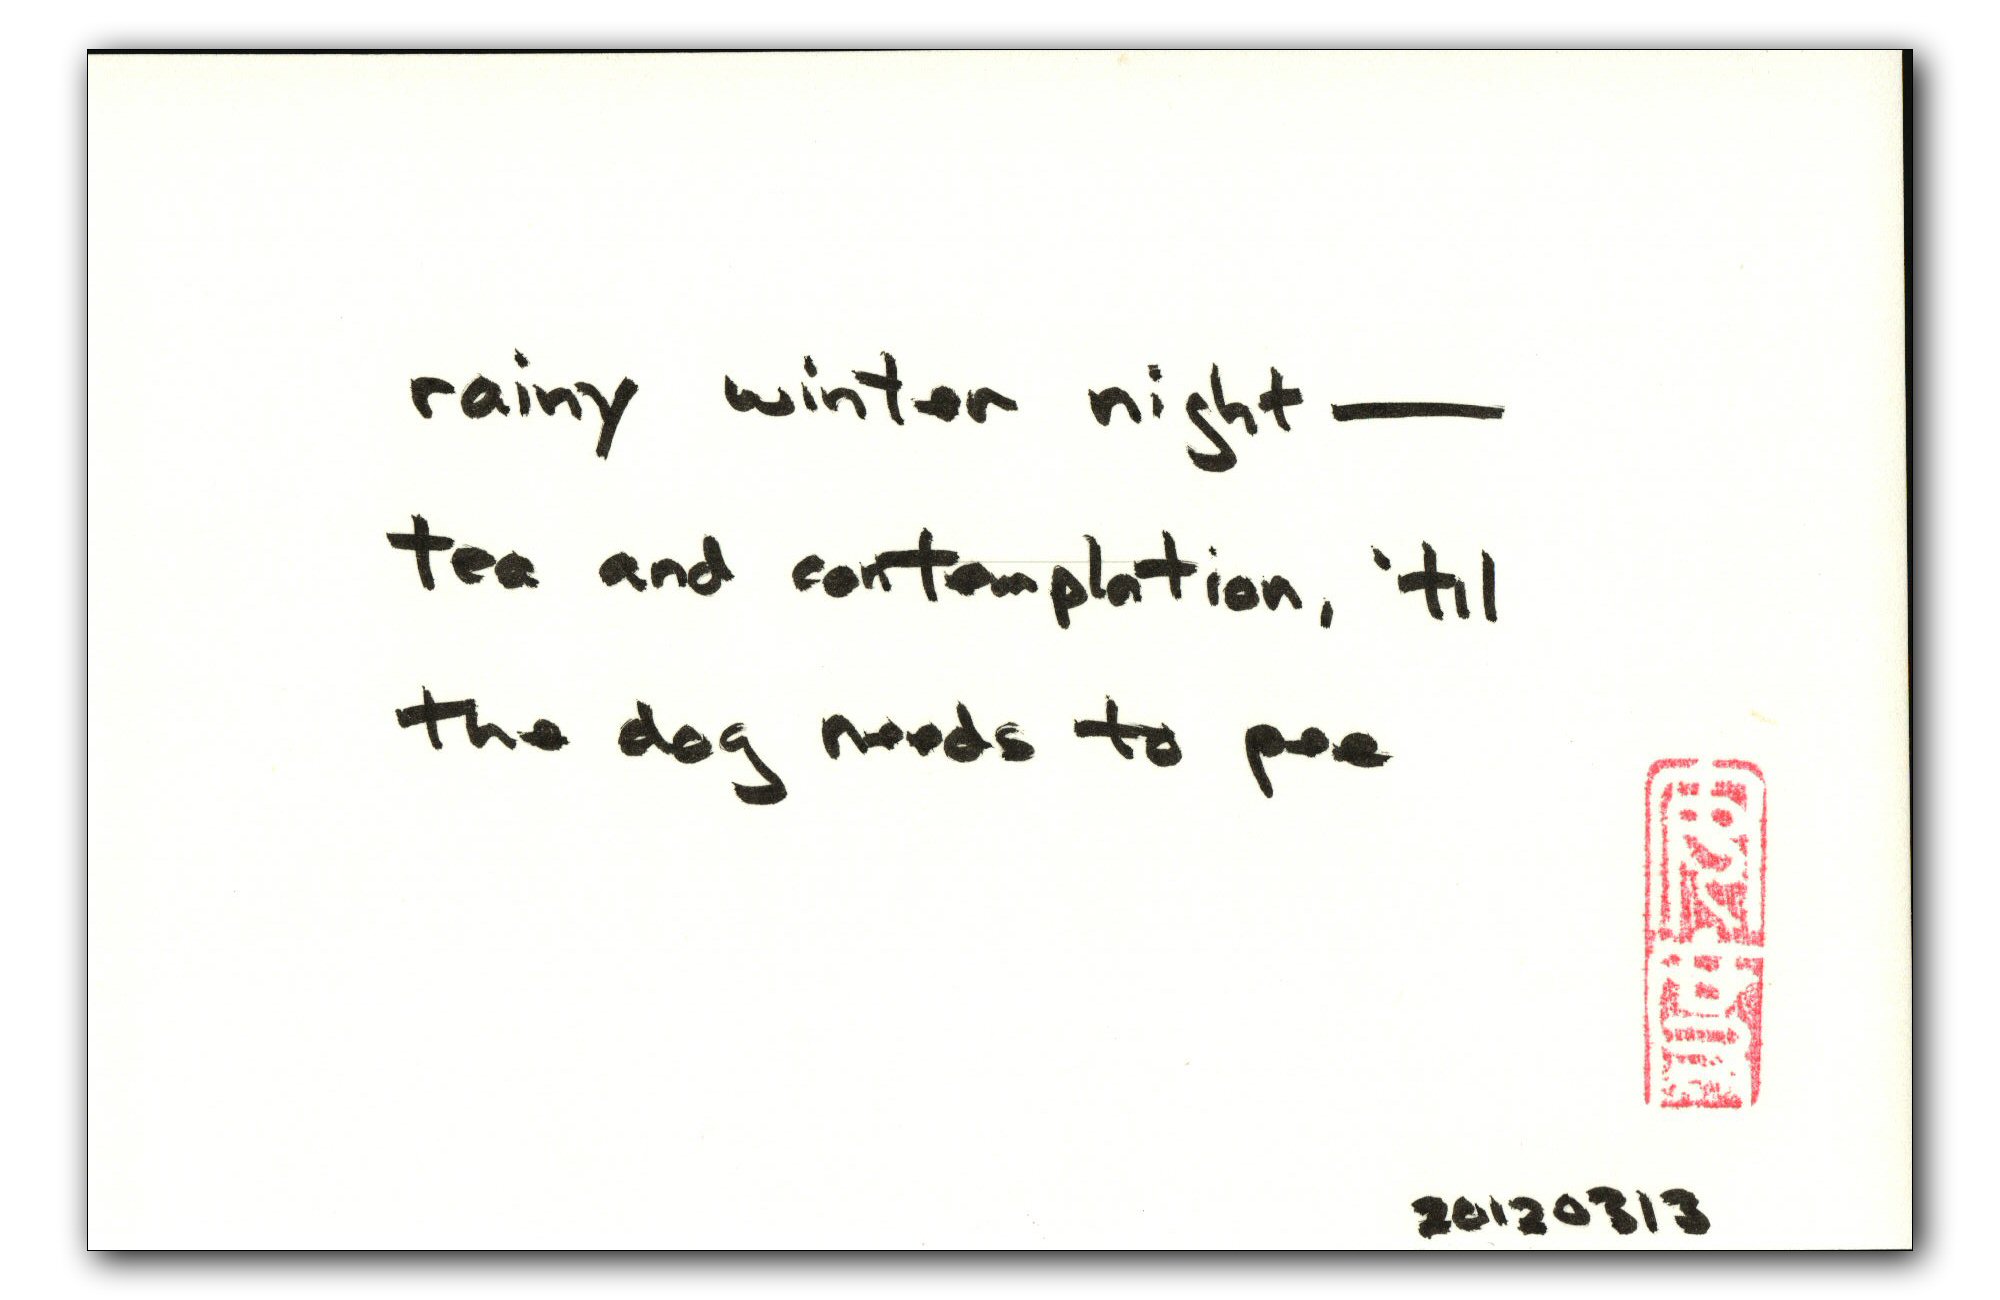 rainy winter night—
tea and contemplation, 'til
the dog needs to pee
20120313